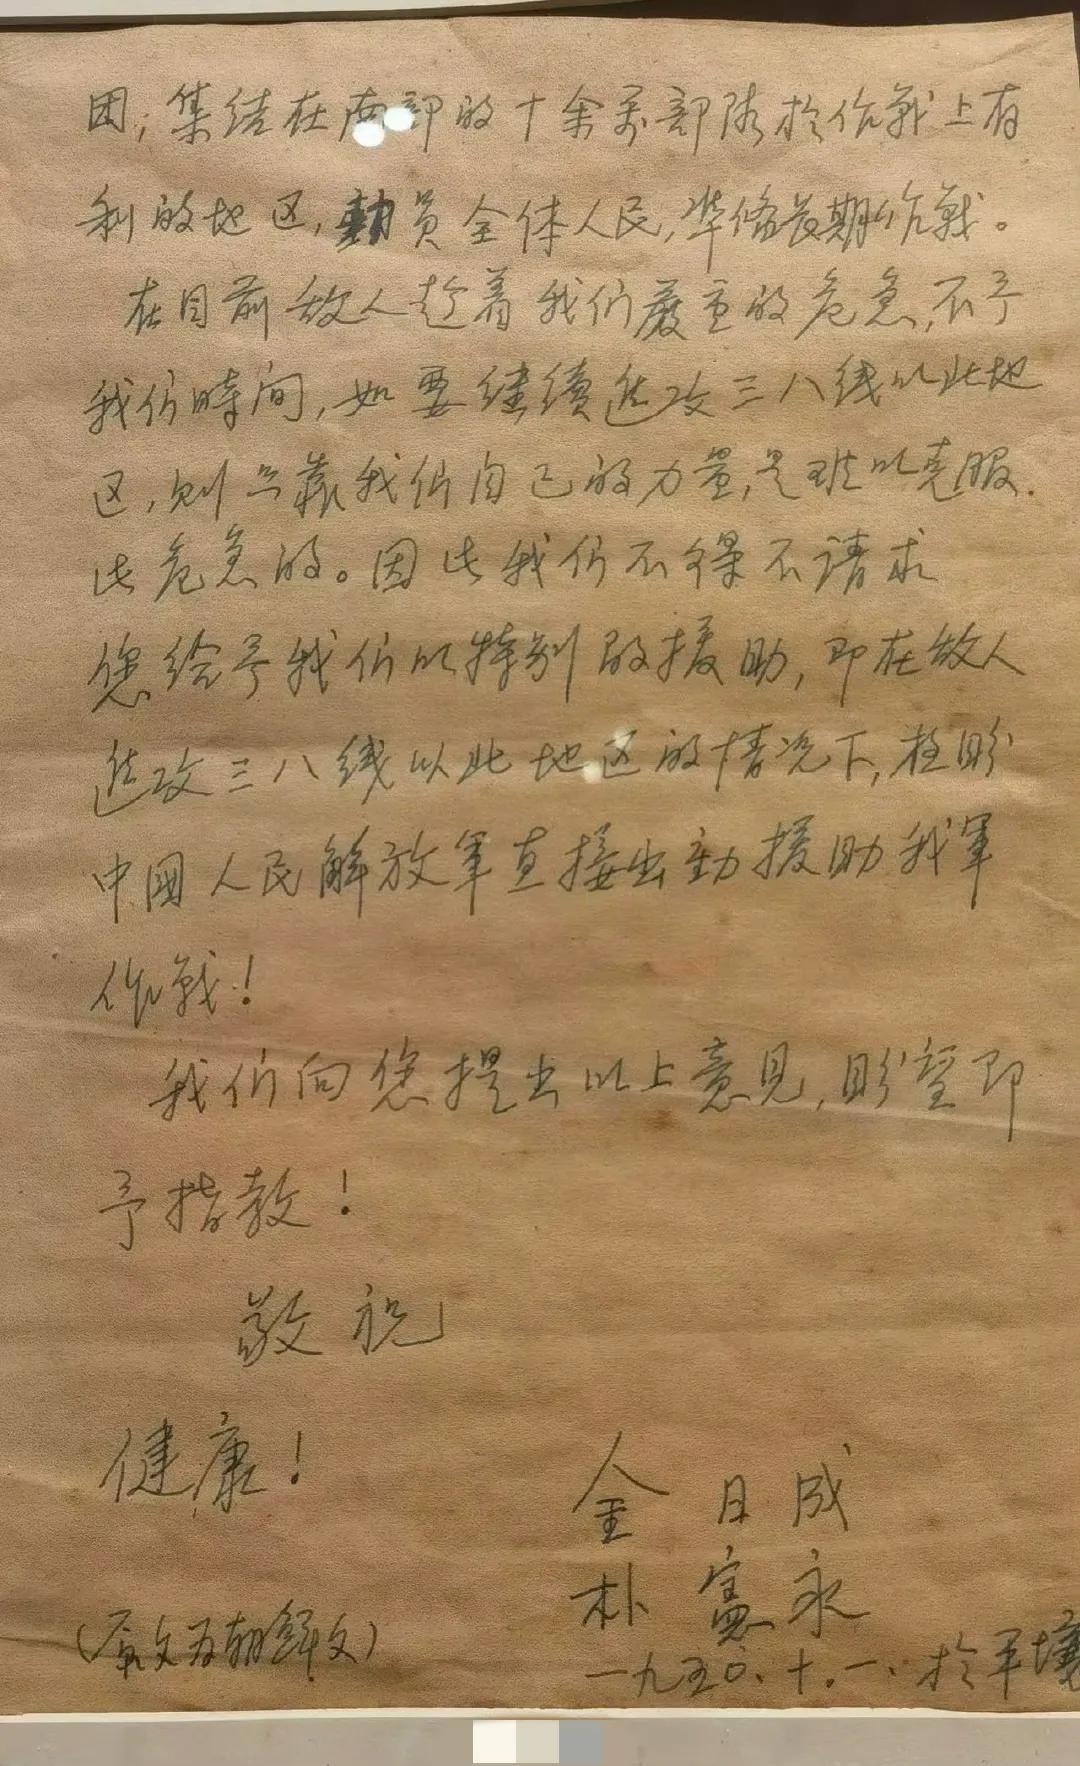 团；集结在南部的十余万部队於作战上有
利的地区，動員全体人民，準偹长期作戦。
在目前敌人趁着我们嚴重的危急，不予
我们時间，如要继续進攻三八线以北地
区，则只靠我们自己的力量，是难以克服
此危急的。因此我们不得不請求
您给予我们以特别的援助，即在敌人
進攻三八线以北地区的情况下，极盼
中國人民解放軍直接出動援助我軍
作戦！
我们向您提出以上意見，盼望即
予指教！
敬祝
健康！
金日成
朴憲永
一九五〇.十.一.於平壤
（原文为朝鲜文）